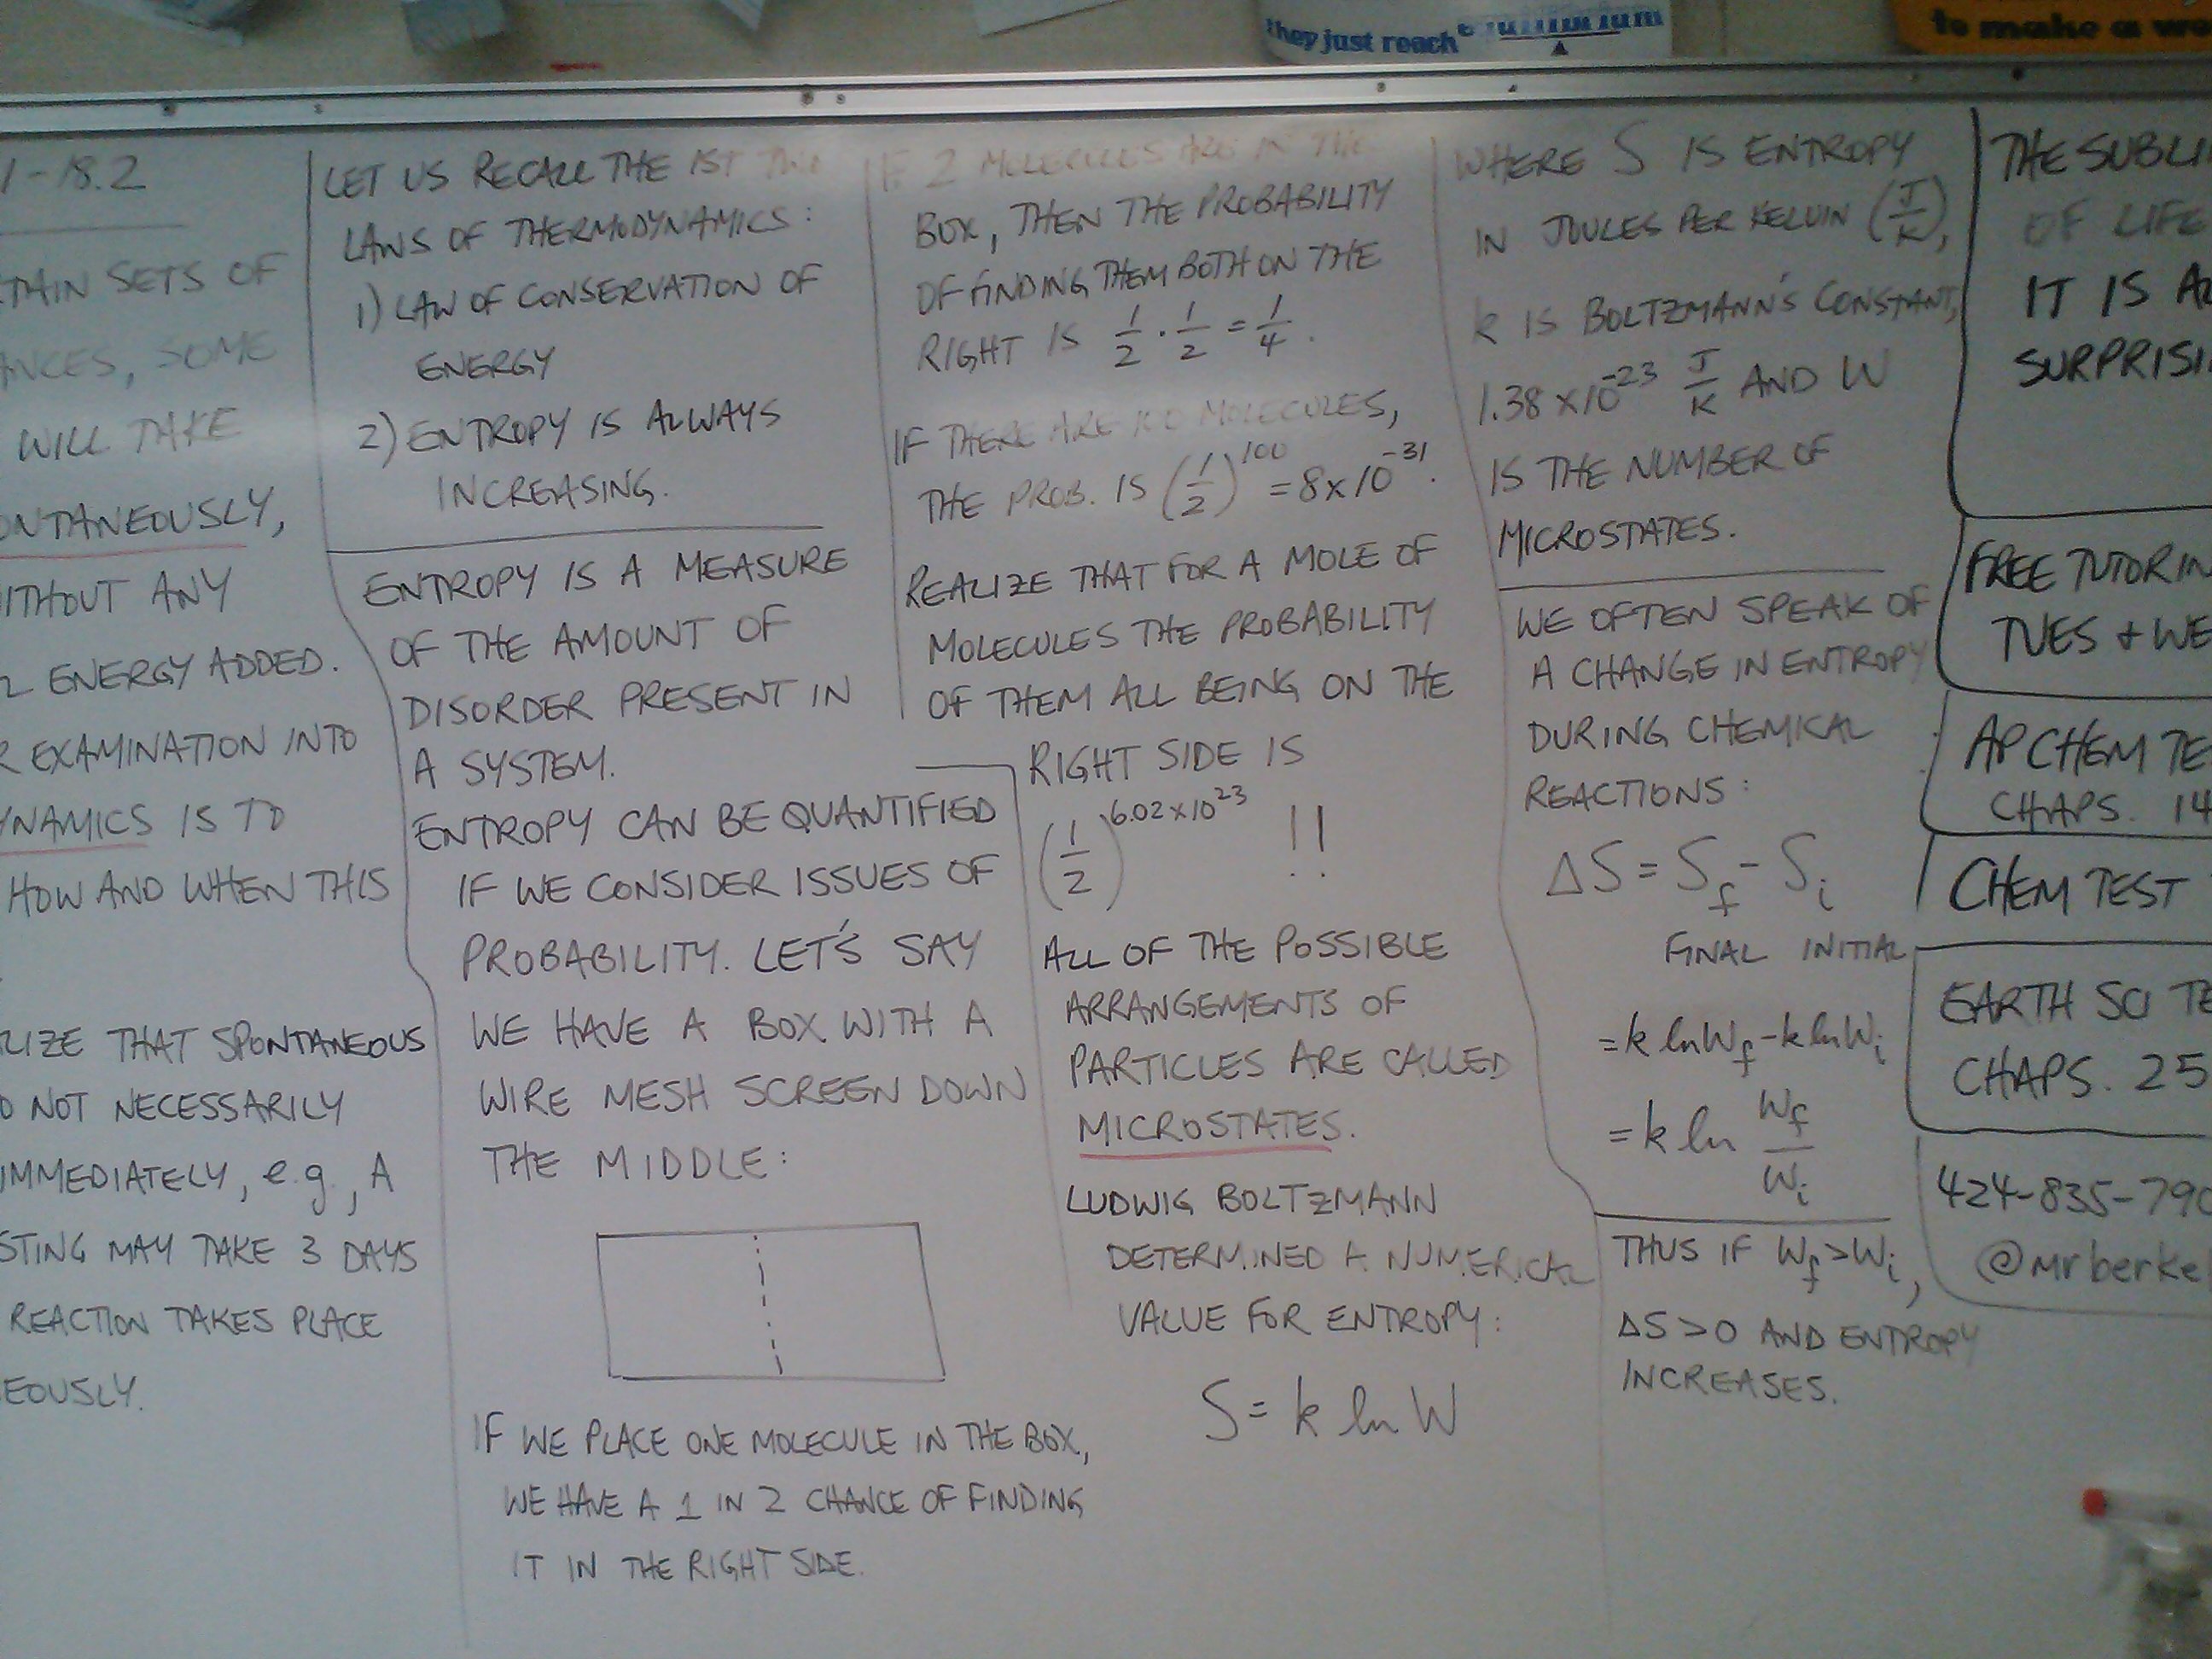 they just reach equilibrium
to make a
1-18.2
SETS OF
SOME
WILL TAKE
WITHOUT ANY
ENERGY ADDED.
EXAMINATION INTO
IS TO
HOW AND WHEN THIS
THAT SPONTANEOUS
NOT NECESSARILY
IMMEDIATELY, e.g., A
MAY TAKE 3 DAYS
REACTION TAKES PLACE
LET US RECALL THE 1ST TWO
LAWS OF THERMODYNAMICS:
1) LAW OF CONSERVATION OF
ENERGY
2) ENTROPY IS ALWAYS
INCREASING.
ENTROPY IS A MEASURE
OF THE AMOUNT OF
DISORDER PRESENT IN
A SYSTEM.
ENTROPY CAN BE QUANTIFIED
IF WE CONSIDER ISSUES OF
PROBABILITY. LET'S SAY
WE HAVE A BOX WITH A
WIRE MESH SCREEN DOWN
THE MIDDLE:
IF WE PLACE ONE MOLECULE IN THE BOX,
WE HAVE A 1 IN 2 CHANCE OF FINDING
IT IN THE RIGHT SIDE.
IF 2 MOLECULES ARE IN THE
BOX, THEN THE PROBABILITY
OF FINDING THEM BOTH ON THE
RIGHT IS 1/2 · 1/2 = 1/4.
IF THERE ARE 100 MOLECULES,
THE PROB. IS (1/2)^100 = 8x10^-31.
REALIZE THAT FOR A MOLE OF
MOLECULES THE PROBABILITY
OF THEM ALL BEING ON THE
RIGHT SIDE IS
(1/2)^6.02x10^23 !!
ALL OF THE POSSIBLE
ARRANGEMENTS OF
PARTICLES ARE CALLED
MICROSTATES.
LUDWIG BOLTZMANN
DETERMINED A NUMERICAL
VALUE FOR ENTROPY:
S = k ln W
WHERE S IS ENTROPY
IN JOULES PER KELVIN (J/K),
k IS BOLTZMANN'S CONSTANT,
1.38 x10^-23 J/K AND W
IS THE NUMBER OF
MICROSTATES.
WE OFTEN SPEAK OF
A CHANGE IN ENTROPY
DURING CHEMICAL
REACTIONS:
ΔS = S_f - S_i
FINAL INITIAL
= k ln W_f - k ln W_i
= k ln W_f/W_i
THUS IF W_f > W_i,
ΔS > 0 AND ENTROPY
INCREASES.
THE
OF LIFE
IT IS
FREE
TUES + WE
AP CHEM
CHAPS. 14
CHEM TEST
EARTH SCI
CHAPS. 25
424-835-790
@mrberke